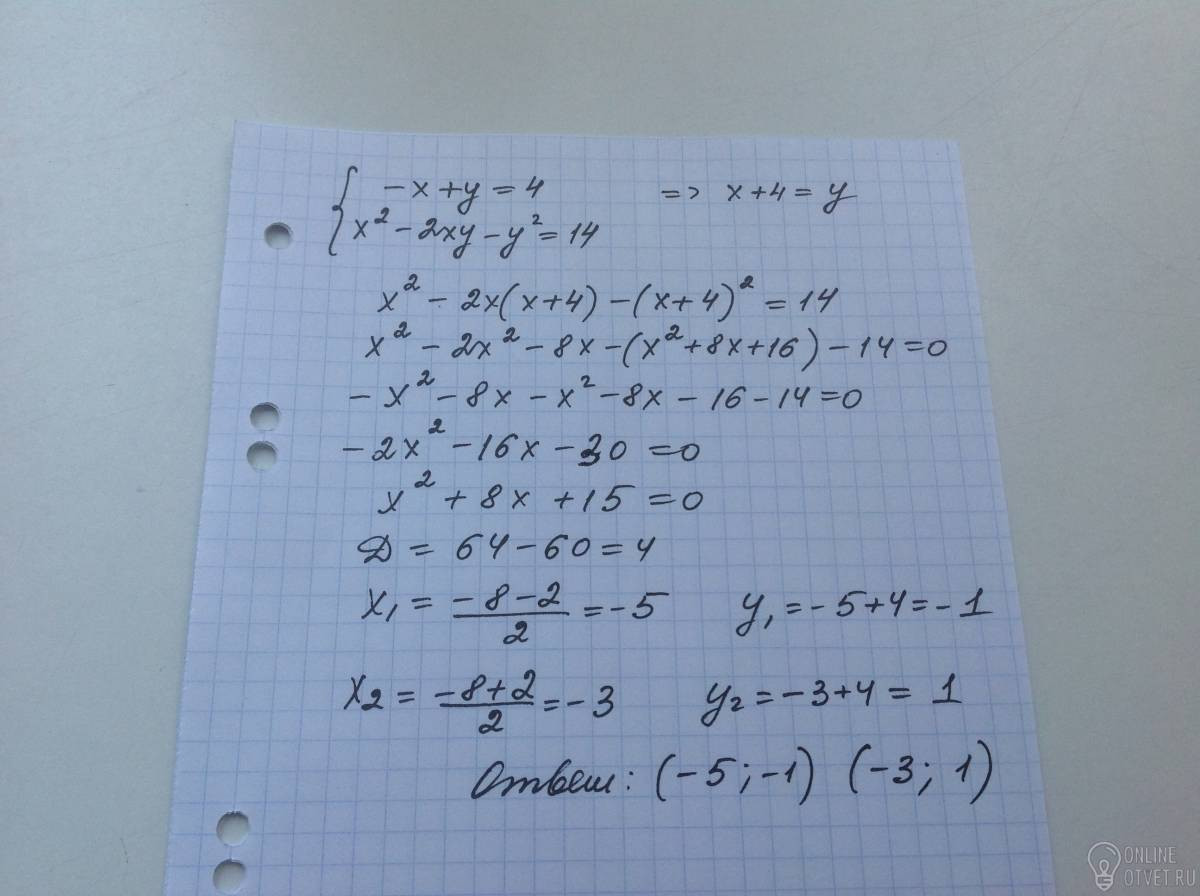 -x+y=4 => x+4=y
x²-2xy-y²=14
x²-2x(x+4)-(x+4)²=14
x²-2x²-8x-(x²+8x+16)-14=0
-x²-8x-x²-8x-16-14=0
-2x²-16x-30=0
x²+8x+15=0
Д=64-60=4
x₁=(-8-2)/2=-5 y₁=-5+4=-1
x₂=(-8+2)/2=-3 y₂=-3+4=1
Ответ: (-5;-1) (-3; 1)
ONLINE
OTVET.RU